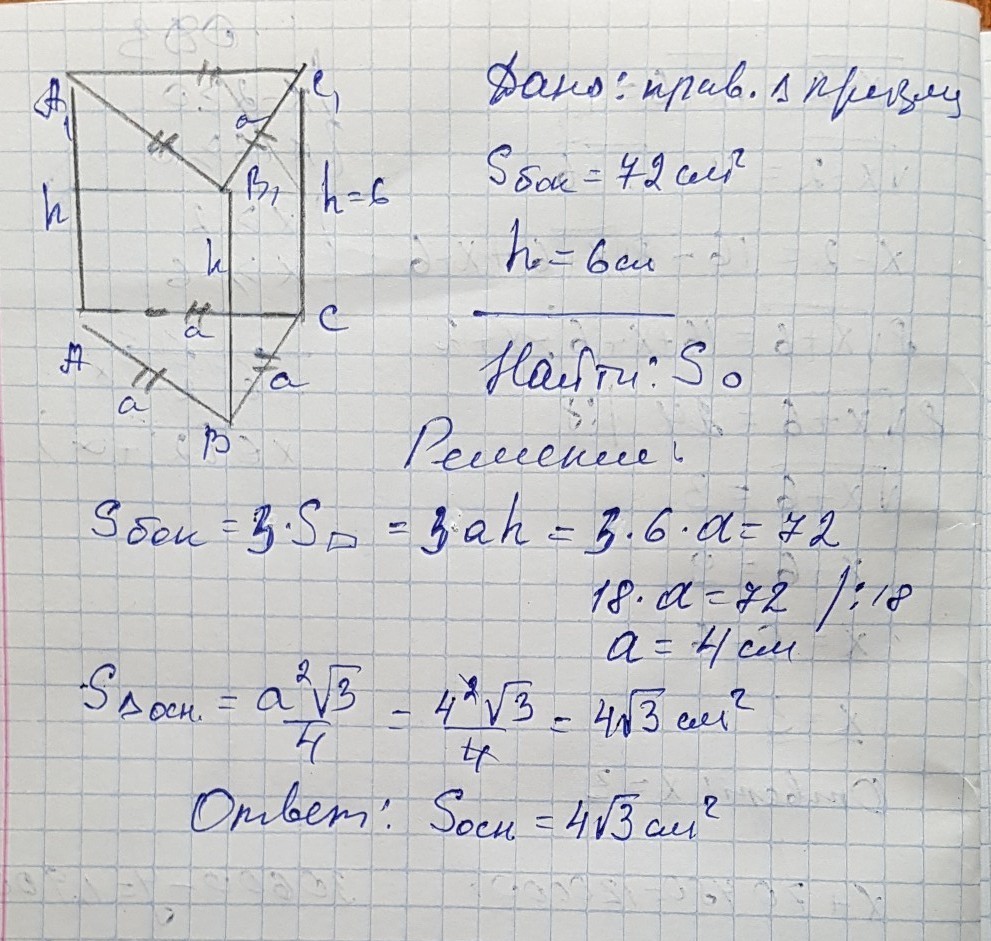 A₁
C₁
a
B₁
h
h=6
h
a
C
A
a
a
B
Дано: прав. Δ призма
Sбок = 72 см²
h = 6см
Найти: So
Решение:
Sбок = 3·S▱ = 3·ah = 3·6·a = 72
18·a = 72 /:18
a = 4 см
SΔосн. = a²√3/4 = 4²√3/4 = 4√3 см²
Ответ: Sосн = 4√3 см²